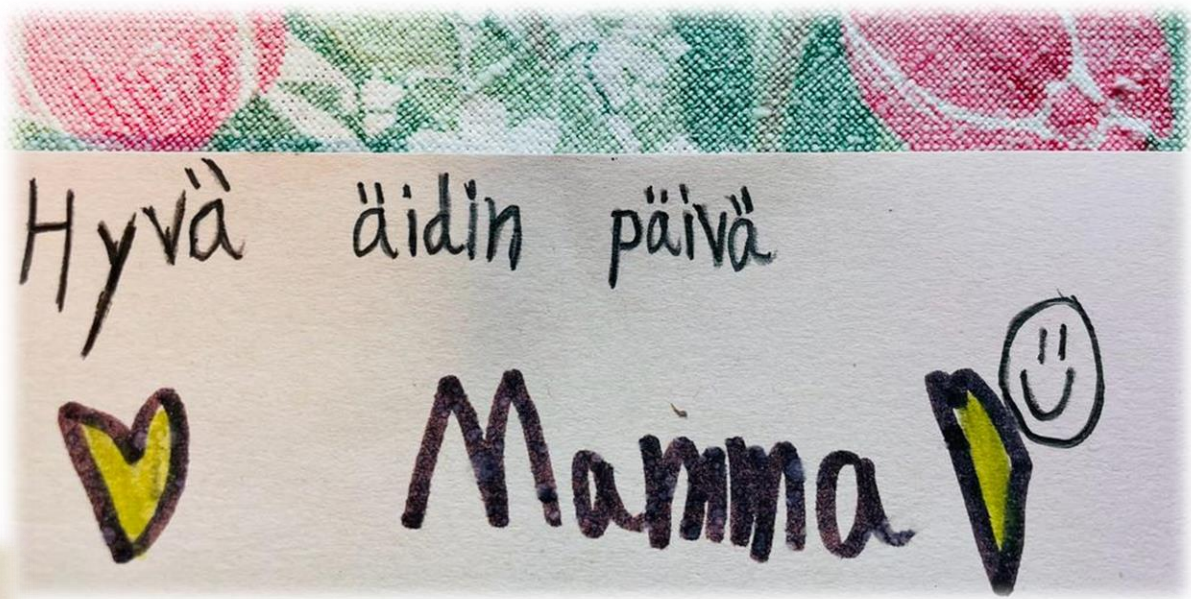 Hyvä äidin päivä
Mamma